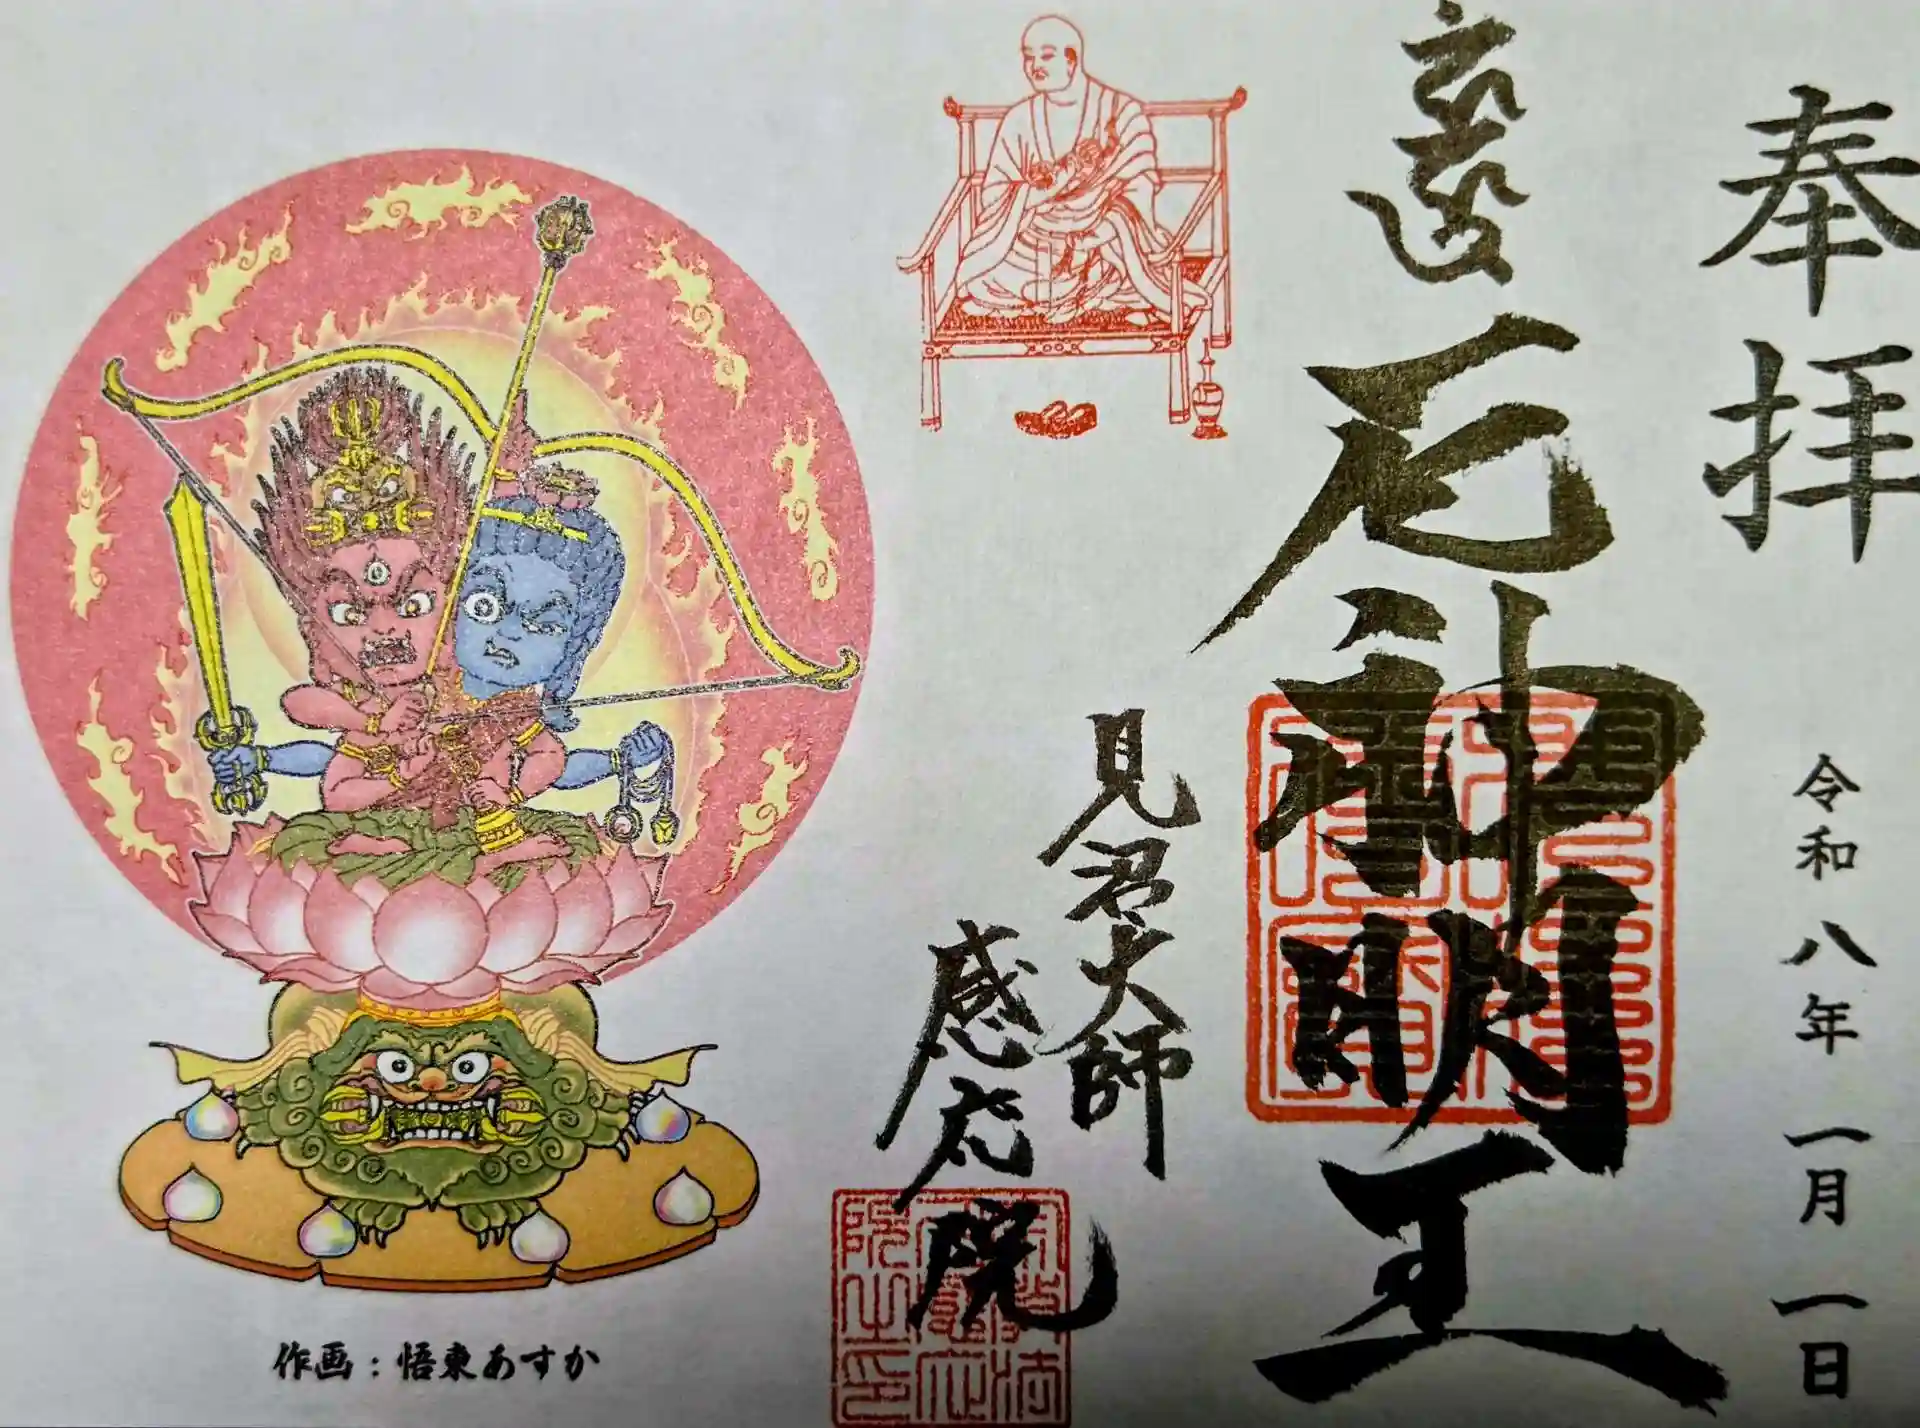 奉拝
令和八年一月一日
厄神明王
見沼大師
感応院
作画：悟東あすか